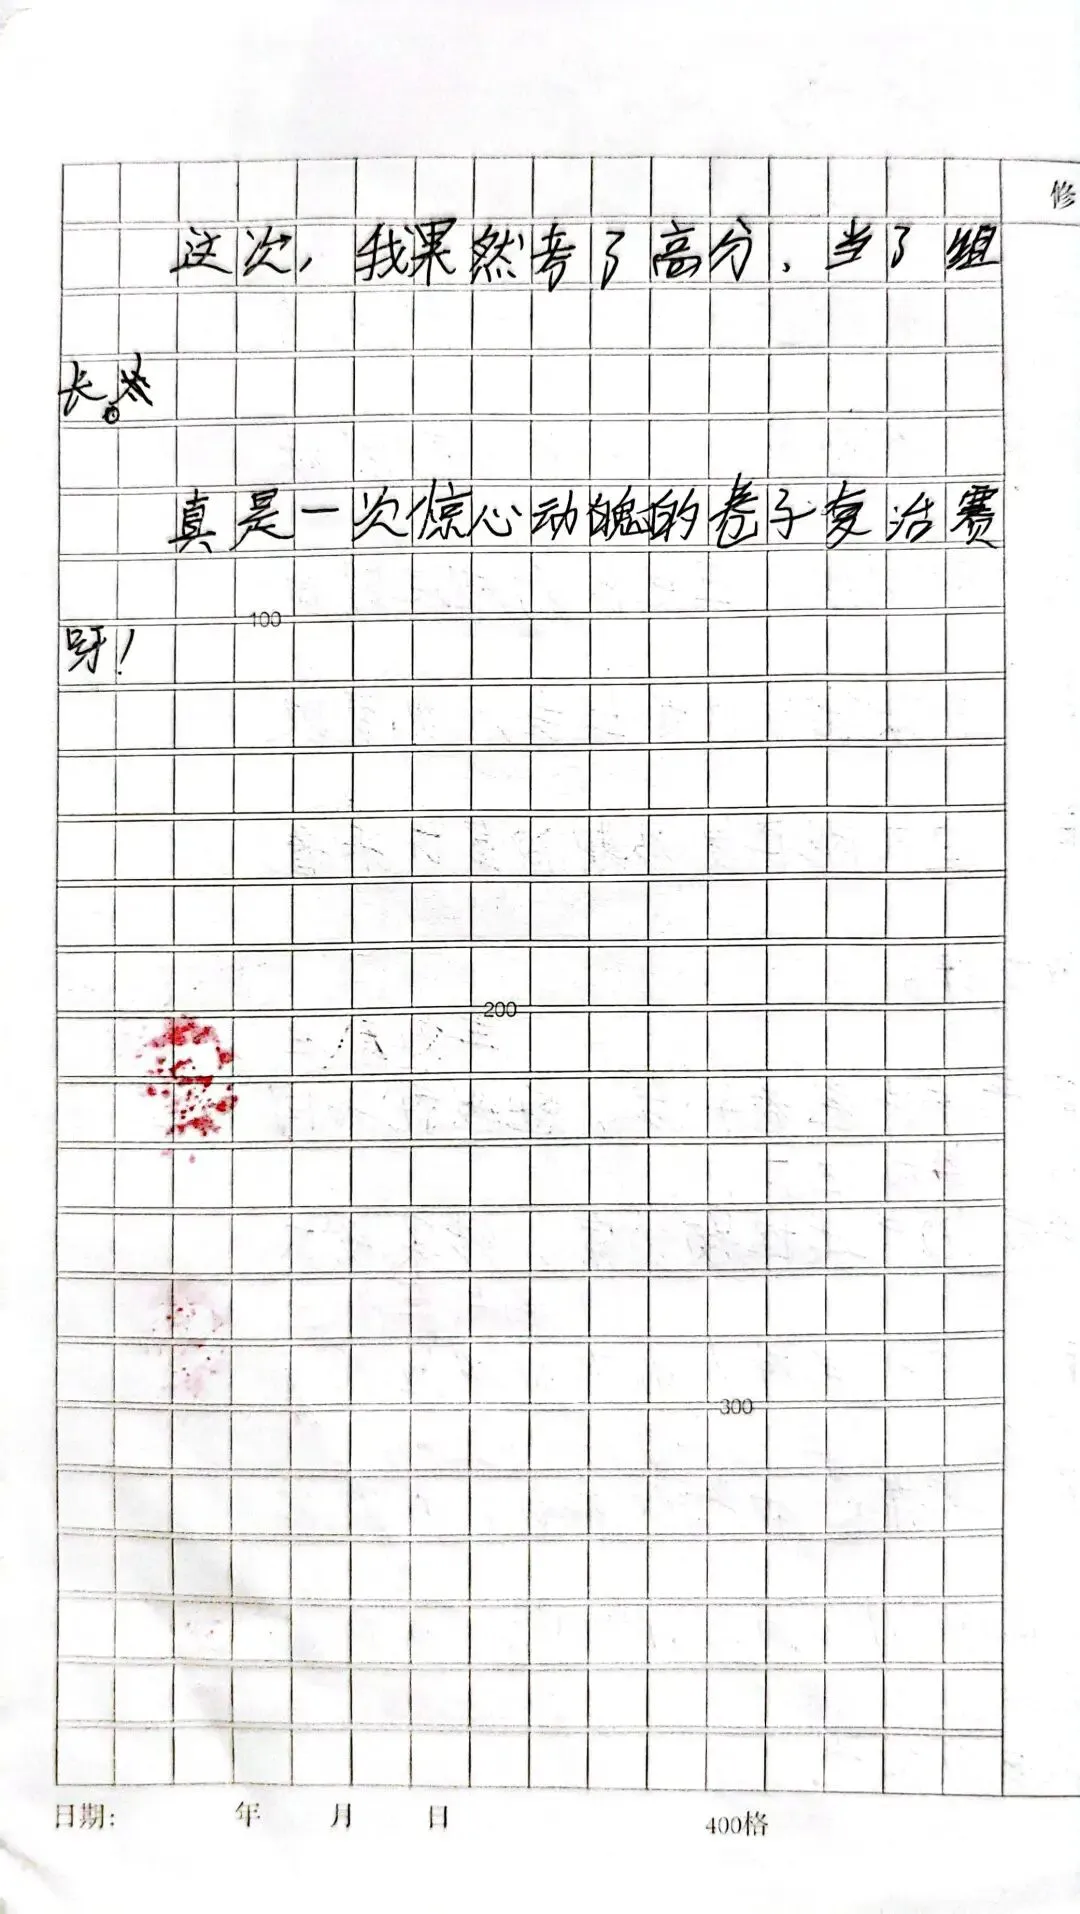 修
这次，我果然考了高分，当了组
长。
真是一次惊心动魄的卷子复活赛
100
呀！
200
300
日期： 年 月 日 400格